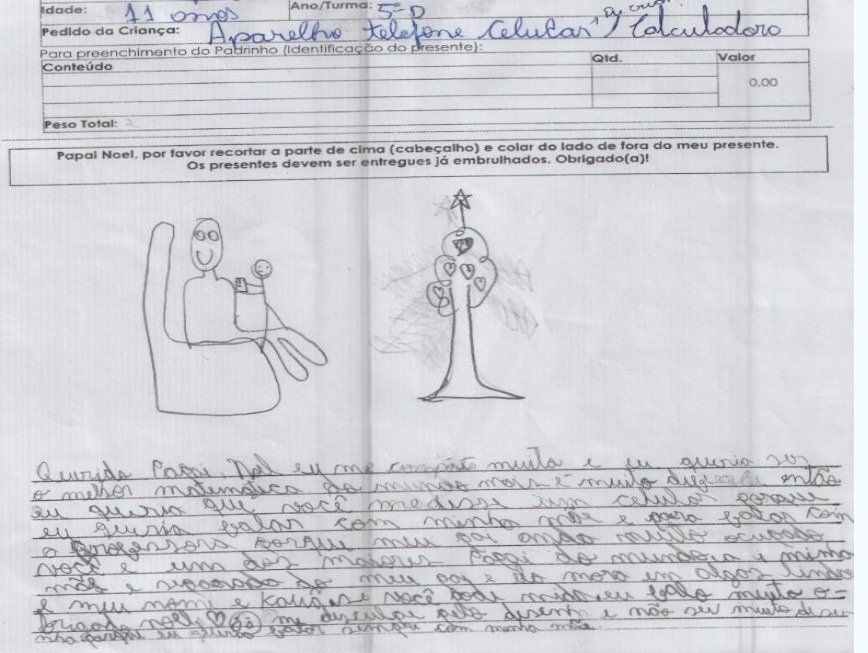 Idade: 11 anos Ano/Turma: 5º D
Pedido da Criança: Aparelho telefone celular / Calculadoro
Para preenchimento do Padrinho (Identificação do presente):
Conteúdo Qtd. Valor
0,00
Peso Total:
Papai Noel, por favor recortar a parte de cima (cabeçalho) e colar do lado de fora do meu presente.
Os presentes devem ser entregues já embrulhados. Obrigado(a)!
Querido Papai Noel eu me muito e eu queria ser
o melhor matematico do mundo mais é muito então
eu queria que você medesse um celular porque
eu queria falar com minha mãe e para falar com
a professora porque meu pai anda muito ocupado
você é um dos maiores Papai do mundo e minha
mãe e separada do meu pai e ela mora em
e meu nome e Kauã se você pode mida eu falo muito o-
brigado noel me disculpe pelo desenho e não sei muito dise
nha porque eu quero falar sempre com minha mãe.